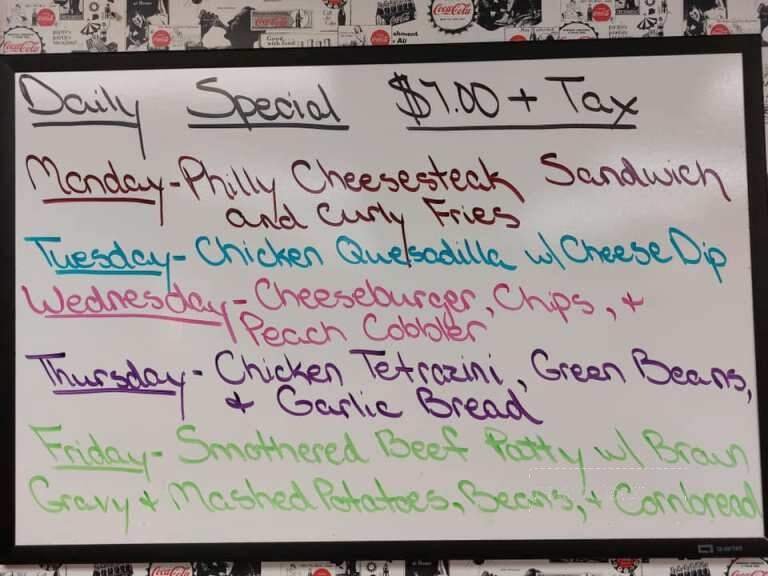 Daily Special $7.00 + Tax
Monday - Philly Cheesesteak Sandwich
and Curly Fries
Tuesday - Chicken Quesadilla w/ Cheese Dip
Wednesday - Cheeseburger, Chips, +
Peach Cobbler
Thursday - Chicken Tetrazini, Green Beans,
+ Garlic Bread
Friday - Smothered Beef Patty w/ Brown
Gravy + Mashed Potatoes, Beans, + Cornbread